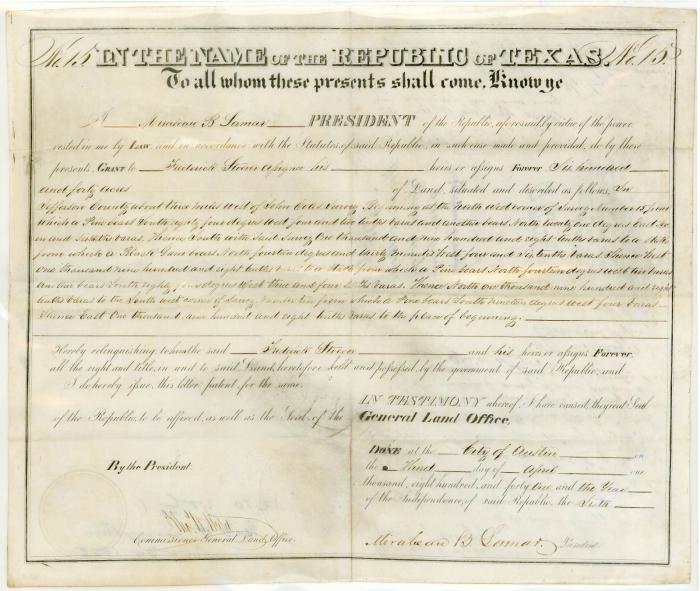 No. 15 IN THE NAME OF THE REPUBLIC OF TEXAS. No. 15.
To all whom these presents shall come, Know ye
I Mirabeau B Lamar PRESIDENT of the Republic, aforesaid, by virtue of the power
vested in me by LAW, and in accordance with the Statutes of said Republic, in such case made and provided, do by these
presents, GRANT to Frederick assignee his heirs or assigns Forever Six hundred
and forty acres of Land, situated and described as follows, In
Jefferson County about three miles West of John Coles Survey Beginning at the North West corner of Survey Number 15 from
which a Pine bears South eighty four degrees West four and two tenths varas and another bears North twenty one degrees East
and varas. Thence South with said Survey One thousand and nine hundred and eight tenths varas to a Stake
from which a Black Gum bears North fourteen degrees and thirty minutes West four and six tenths varas. Thence West
One thousand nine hundred and eight tenths varas to a stake from which a Pine bears North fourteen degrees west two varas
another bears South eighty four degrees West three and four varas. Thence North one thousand nine hundred and eight
tenths varas to the South west corner of Survey Number ten from which a Pine bears South nineteen degrees west four varas
Thence East One thousand, nine hundred and eight tenths varas to the place of beginning.
Hereby relinquishing to him the said Frederick and his heirs or assigns Forever.
all the right and title, in and to said Land, heretofore held and possessed, by the government of said Republic, and
I do hereby issue, this letter patent for the same.
IN TESTIMONY whereof, I have caused, the great Seal
of the Republic, to be affixed, as well as the Seal, of the General Land Office.
DONE at the City of Austin on
By the President. the Third day of April one
thousand, eight hundred, and forty One and the Year
of the Independence, of said Republic, the Sixth
Commissioner General Land Office.
Mirabeau B. Lamar President